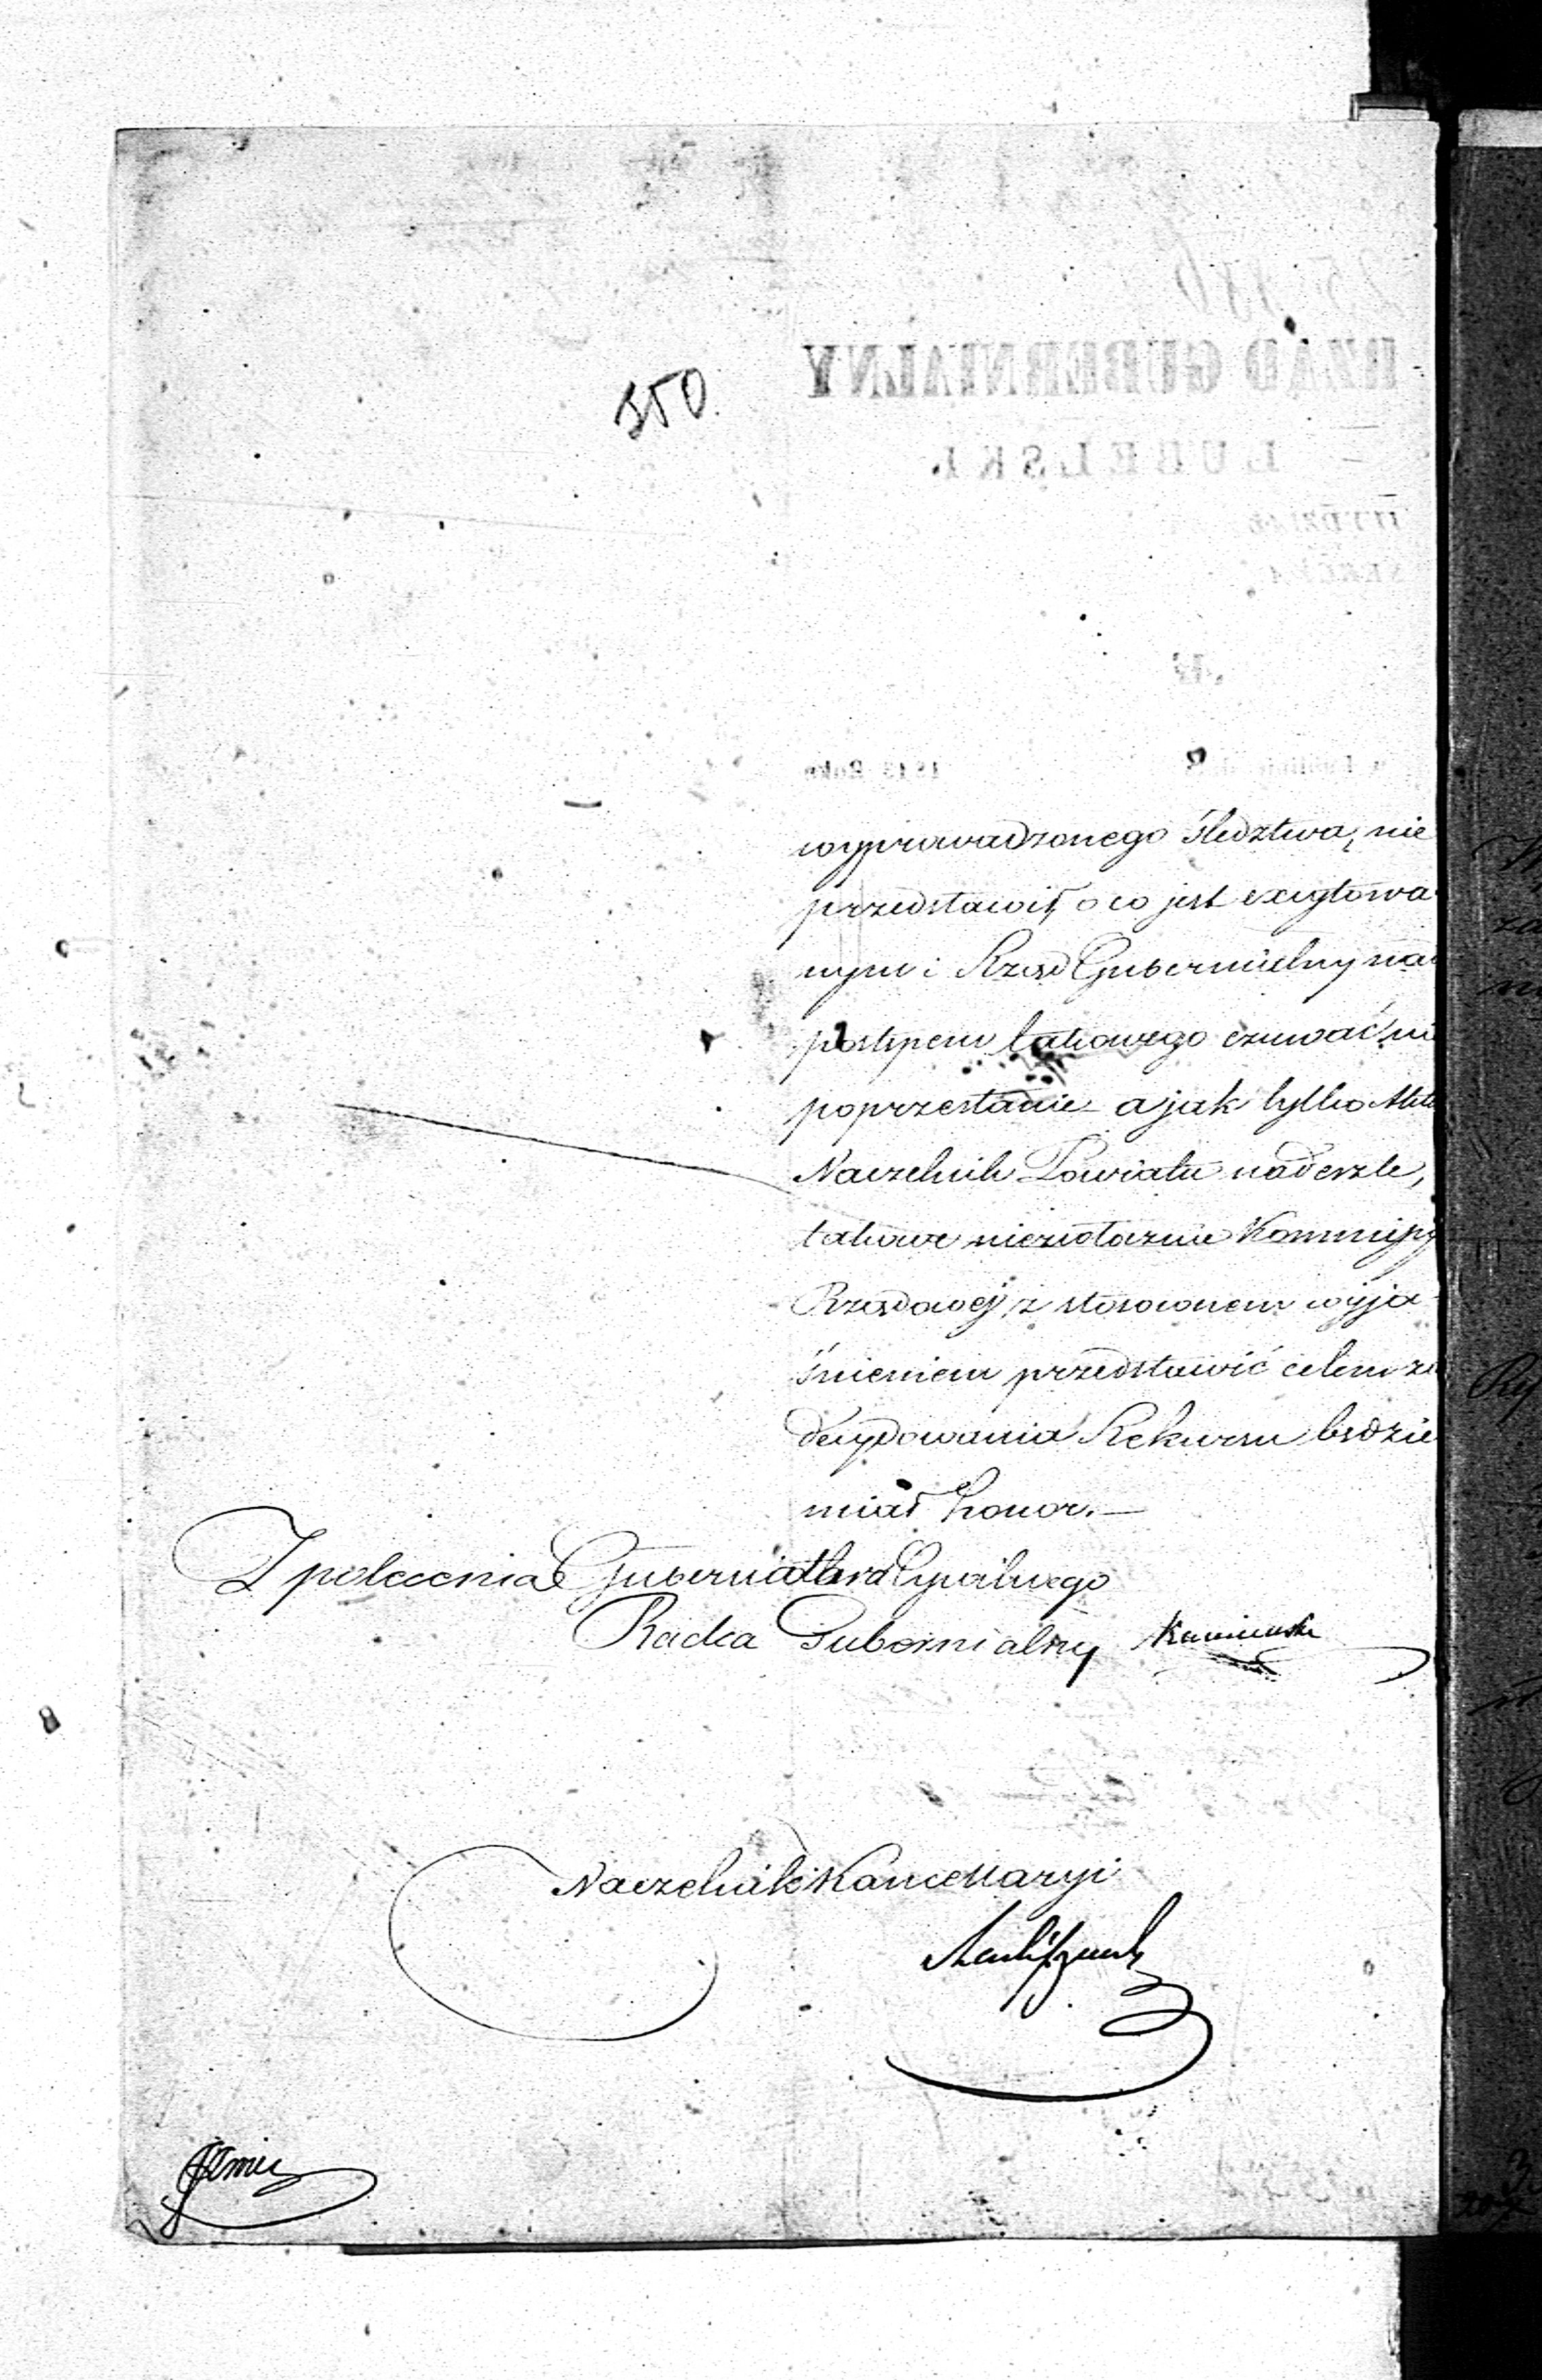 350.
RZĄD GUBERNIALNY
LUBELSKI.
WYDZIAŁ
SEKCYA
№
1843 Roku
wyprowadzonego śledztwa, nie
przedstawił, o co jest exeytowa
nym i Rząd Gubernialny na
postępem takowego czuwać ni
poprzestanie a jak tylko Akta
Naczelnik Powiatu nadeszle,
takowe niezwłocznie Kommissyi
Rządowej z stosownem wyja-
śnieniem przedstawić celem za
decydowania Rekursu będzie
miał honor.—
Z polecenia Gubernatora Cywilnego
Radca Gubernialny
Naczelnik Kancellaryi